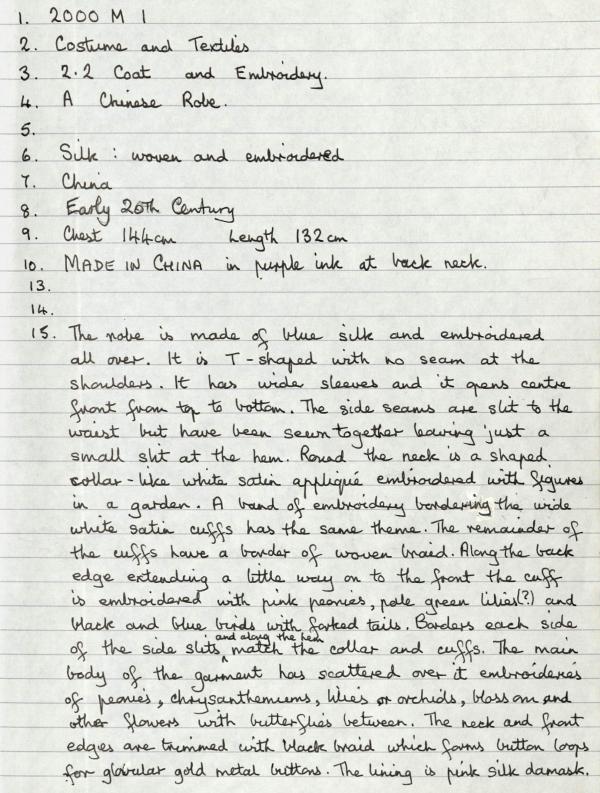 1. 2000 M 1
2. Costume and Textiles
3. 2.2 Coat and Embroidery.
4. A Chinese Robe.
5.
6. Silk : woven and embroidered
7. China
8. Early 20th Century
9. Chest 144cm Length 132cm
10. MADE IN CHINA in purple ink at back neck.
13.
14.
15. The robe is made of blue silk and embroidered
all over. It is T-shaped with no seam at the
shoulders. It has wide sleeves and it opens centre
front from top to bottom. The side seams are slit to the
waist but have been sewn together leaving just a
small slit at the hem. Round the neck is a shaped
collar-like white satin appliqué embroidered with figures
in a garden. A band of embroidery bordering the wide
white satin cuffs has the same theme. The remainder of
the cuffs have a border of woven braid. Along the back
edge extending a little way on to the front the cuff
is embroidered with pink peonies, pale green lilies(?) and
black and blue birds with forked tails. Borders each side
of the side slits and along the hem match the collar and cuffs. The main
body of the garment has scattered over it embroideries
of peonies, chrysanthemums, lilies or orchids, blossom and
other flowers with butterflies between. The neck and front
edges are trimmed with black braid which forms button loops
for globular gold metal buttons. The lining is pink silk damask.